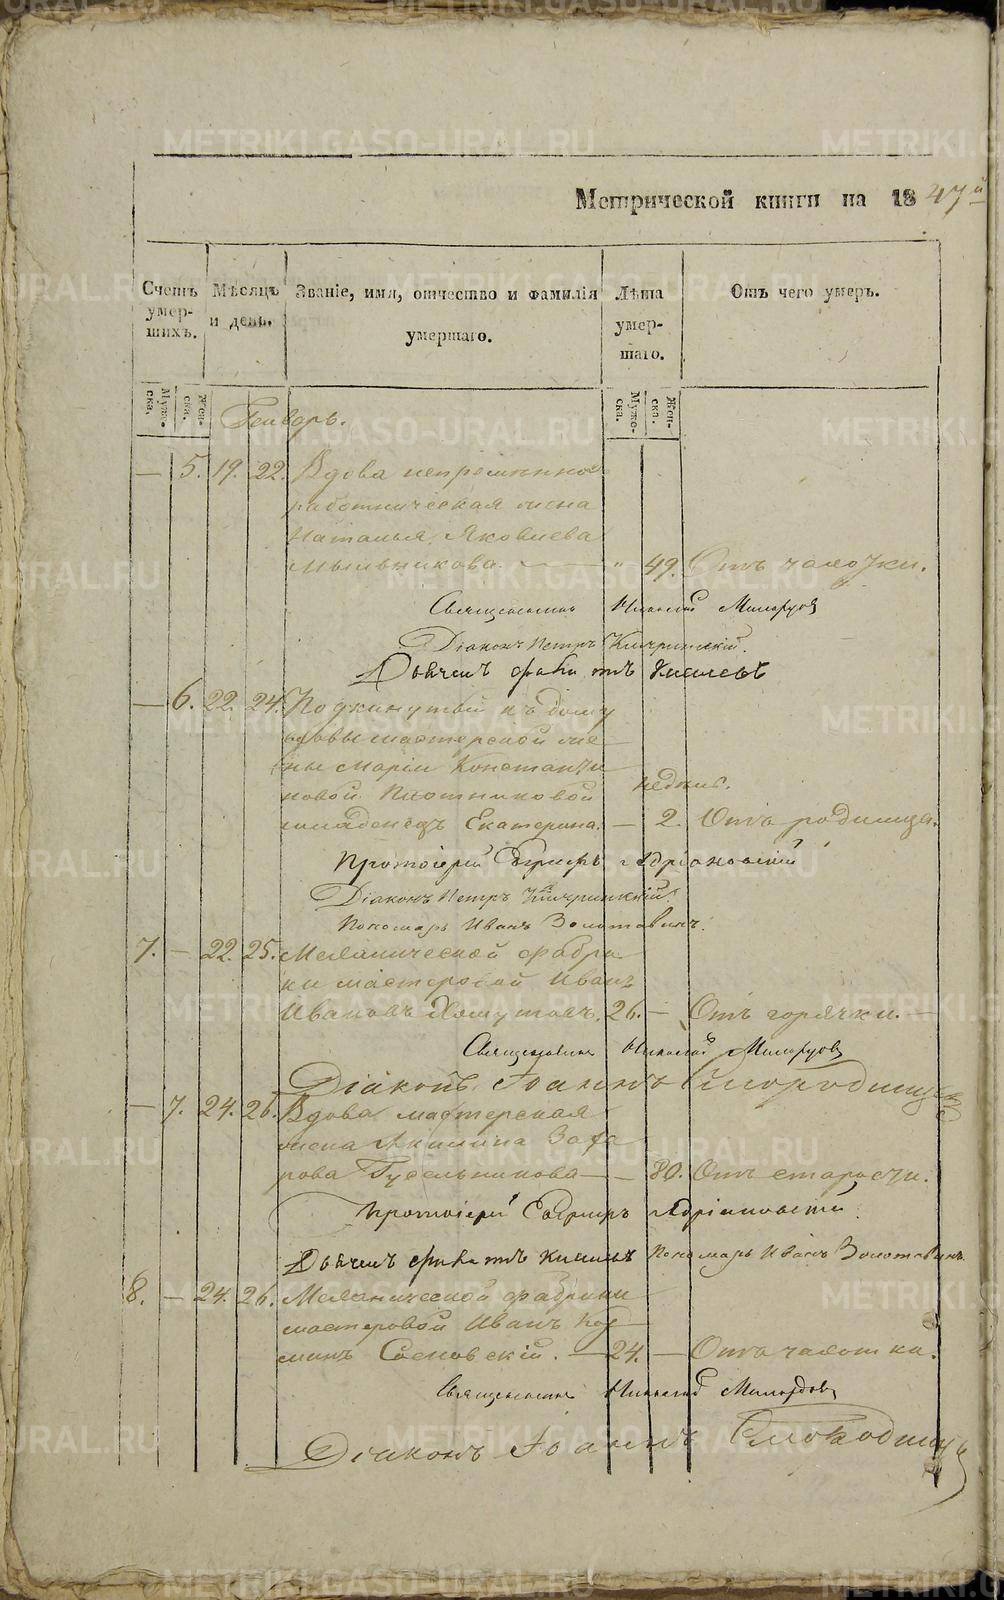 Метрической книги на 1847й
Счетъ умер- шихъ.
Мѣсяцъ и день.
Званіе, имя, отчество и фамилія умершаго.
Лѣта умер- шаго.
Отъ чего умеръ.
Муже- ска.
Жен- ска.
Муже- ска.
Жен- ска.
Генварь.
— 5. 19. 22. Вдова непремѣннаго
работническая жена
Наталья Яковлева
Мыльникова. — „ 49. Отъ чахотки.
Священникъ Николай
Діаконъ Петръ
Дьячекъ
— 6. 22. 24. Подкинутый къ дому
вдовы мастерской же-
ны Маріи Константи
новой Плотниковой недѣль.
младенецъ Екатерина. — 2. Отъ родимца.
Протоіерей Адріановскій
Діаконъ Петръ
Пономарь Иванъ Золотавинъ.
7. — 22. 25. Механической фабри
ки мастеровой Иванъ
Ивановъ Хомутовъ. 26. — Отъ горячки. —
Священникъ Николай
Діаконъ Іоаннъ Смородинцевъ
— 7. 24. 26. Вдова мастерская
жена Акилина Заха
рова Гусельникова — — 80. Отъ старости.
Протоіерей Адріановскій
Дьячекъ Пономарь Иванъ Золотавинъ
8. — 24. 26. Механической фабрики
мастеровой Иванъ Коз
минъ Сосновскій. — 24. — Отъ чахотки.
Священникъ Николай
Діаконъ Іоаннъ Смородинц
METRIKI.GASO-URAL.RU